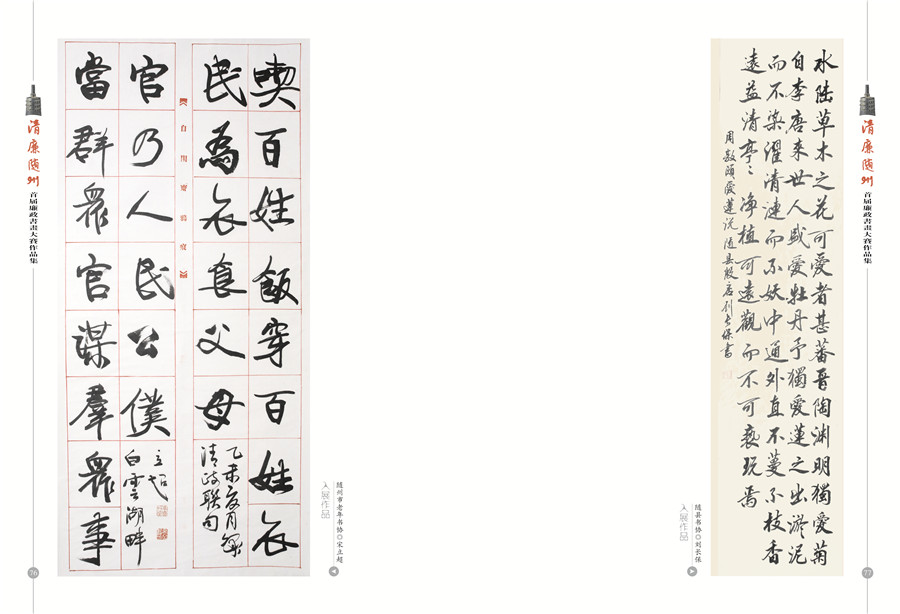 清廉随州
首届廉政書畫大賽作品集
76
喫百姓飯穿百姓衣
民為衣食父母
乙未夏月錄
清政聯句
官乃人民公僕
立超
白雲湖畔
當群眾官謀羣眾事
随州市老年书协◎宋立超
入展作品
水陆草木之花可愛者甚蕃晋陶渊明獨愛菊
自李唐来世人盛愛牡丹予獨愛蓮之出淤泥
而不染濯清漣而不妖中通外直不蔓不枝香
遠益清亭〻净植可遠觀而不可亵玩焉
周敦颐愛蓮说随县殷店刘长保書
随县书协◎刘长保
入展作品
清廉随州
首届廉政書畫大賽作品集
77